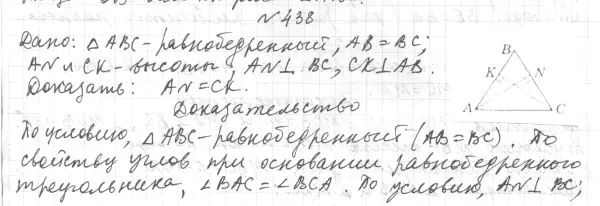 №438
Дано: △ABC - равнобедренный, AB = BC;
AN и CK - высоты, AN⊥ BC, CK⊥AB.
Доказать: AN = CK.
Доказательство
По условию, △ABC - равнобедренный (AB = BC). По
свойству углов при основании равнобедренного
треугольника, ∠BAC = ∠BCA. По условию, AN⊥ BC;
B
K
N
A
C